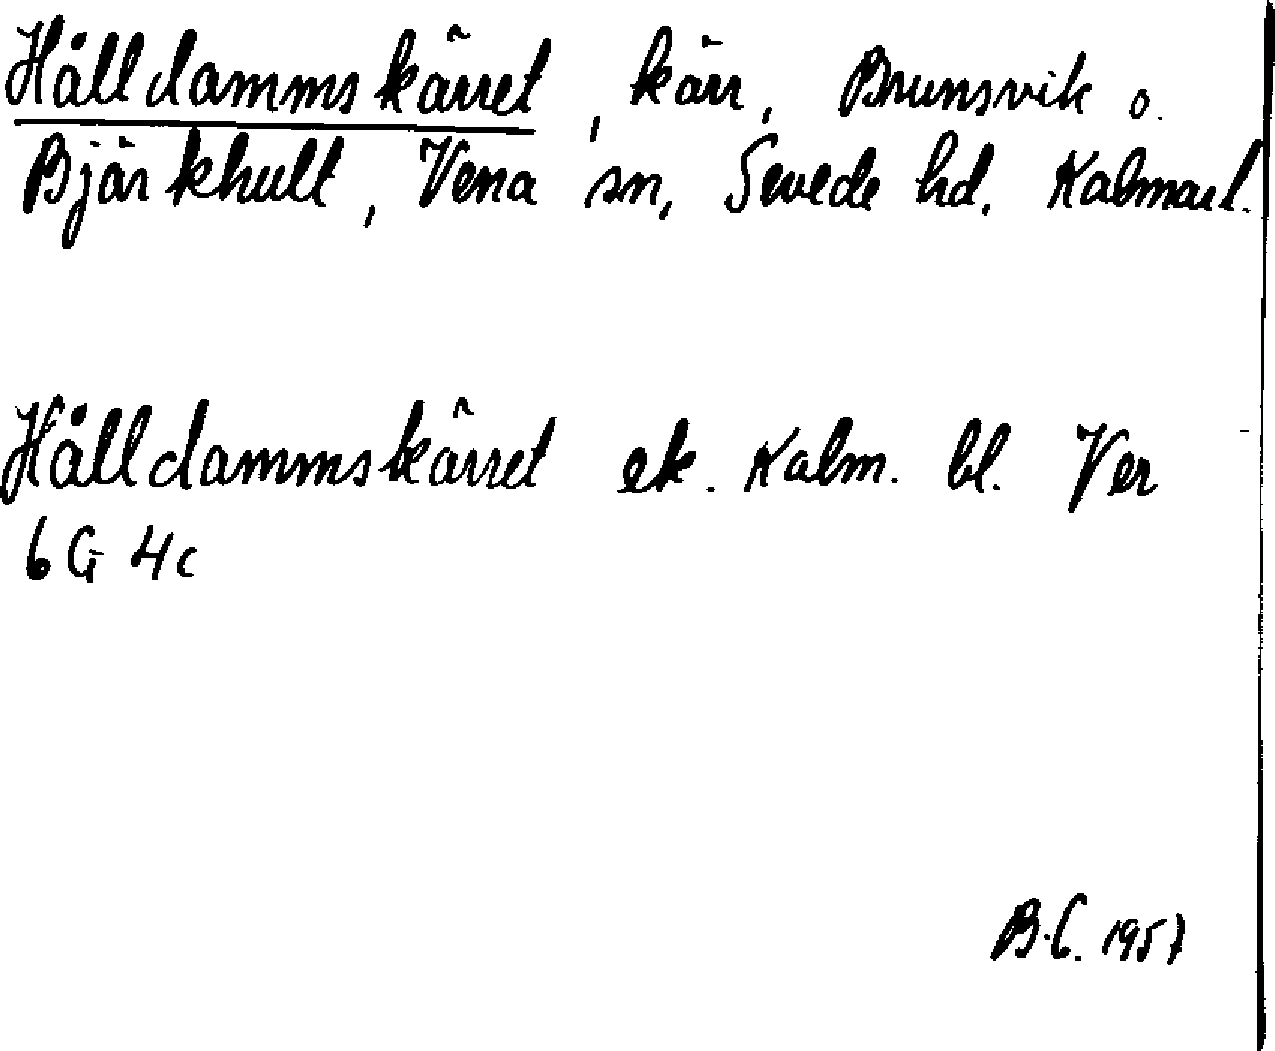 Hålldammskärret, kärr, Brunsvik o.
Bjärkhult, Vena sn, Sevede hd. Kalmarl.
Hålldammskärret ek. Kalm. bl. Ver
6 G 4c
B.C. 1957